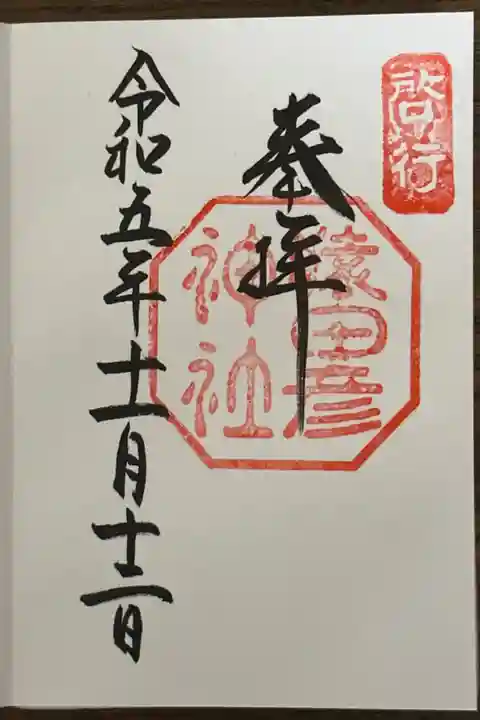 啓行
奉拝
猿田彦
神社
令和五年十一月十二日